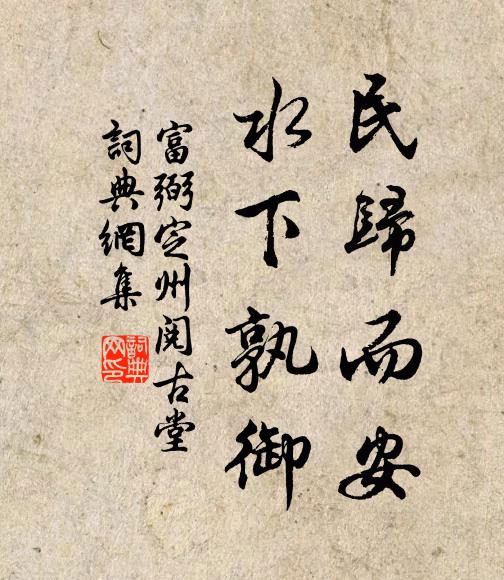 民歸而安
水下孰御
富弼定州閱古堂
詞典網集
詞典
网印